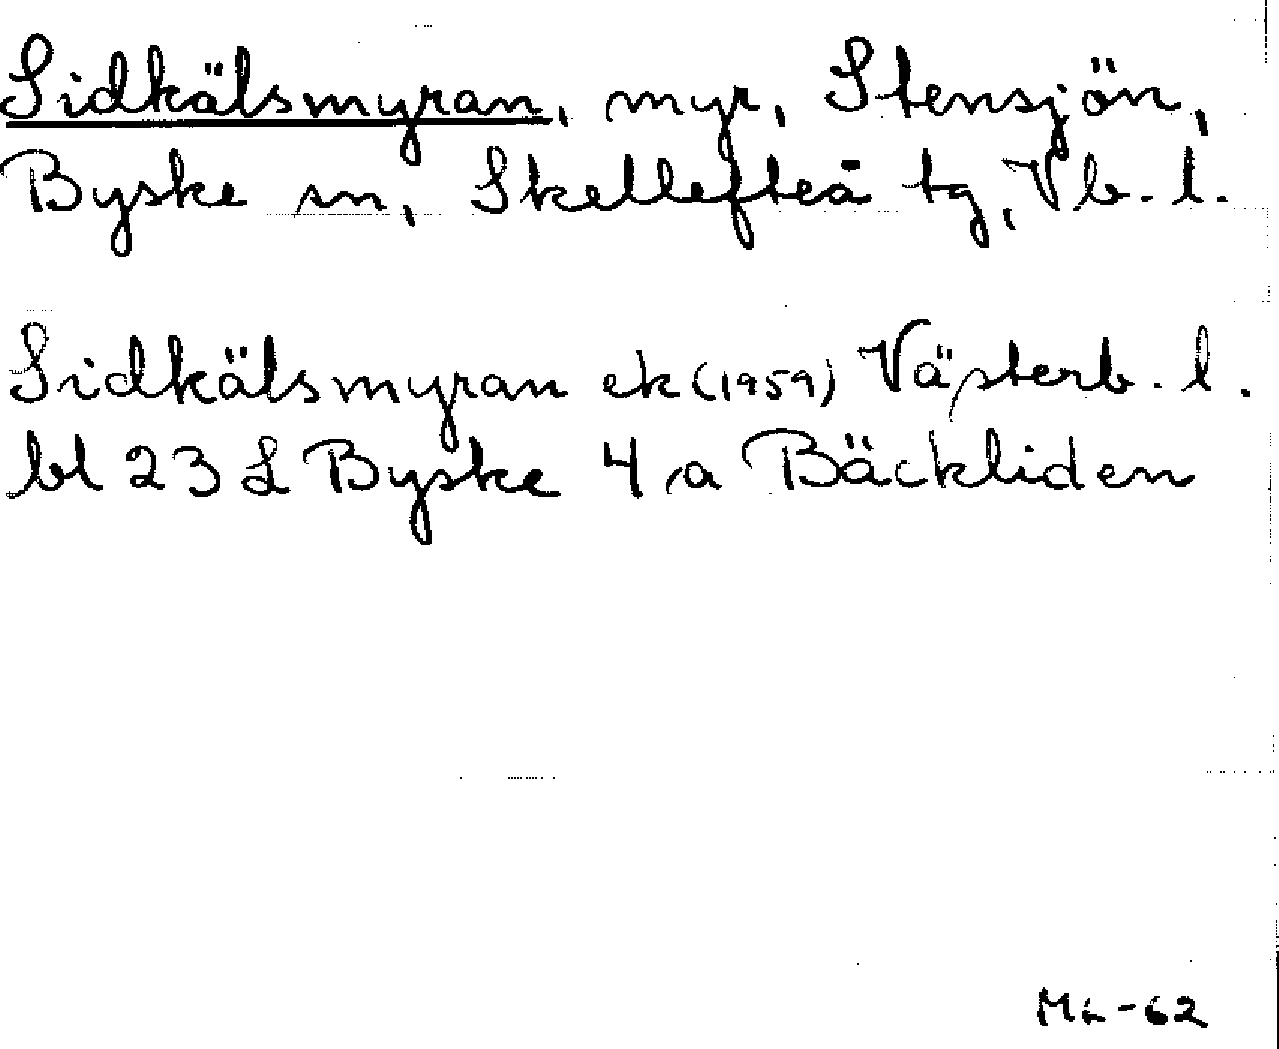 Sidkälsmyran, myr, Stensjön,
Byske sn, Skellefteå tg, Vb. l.
Sidkälsmyran ek (1959) Västerb. l.
bl 23 L Byske 4 a Bäckliden
-62